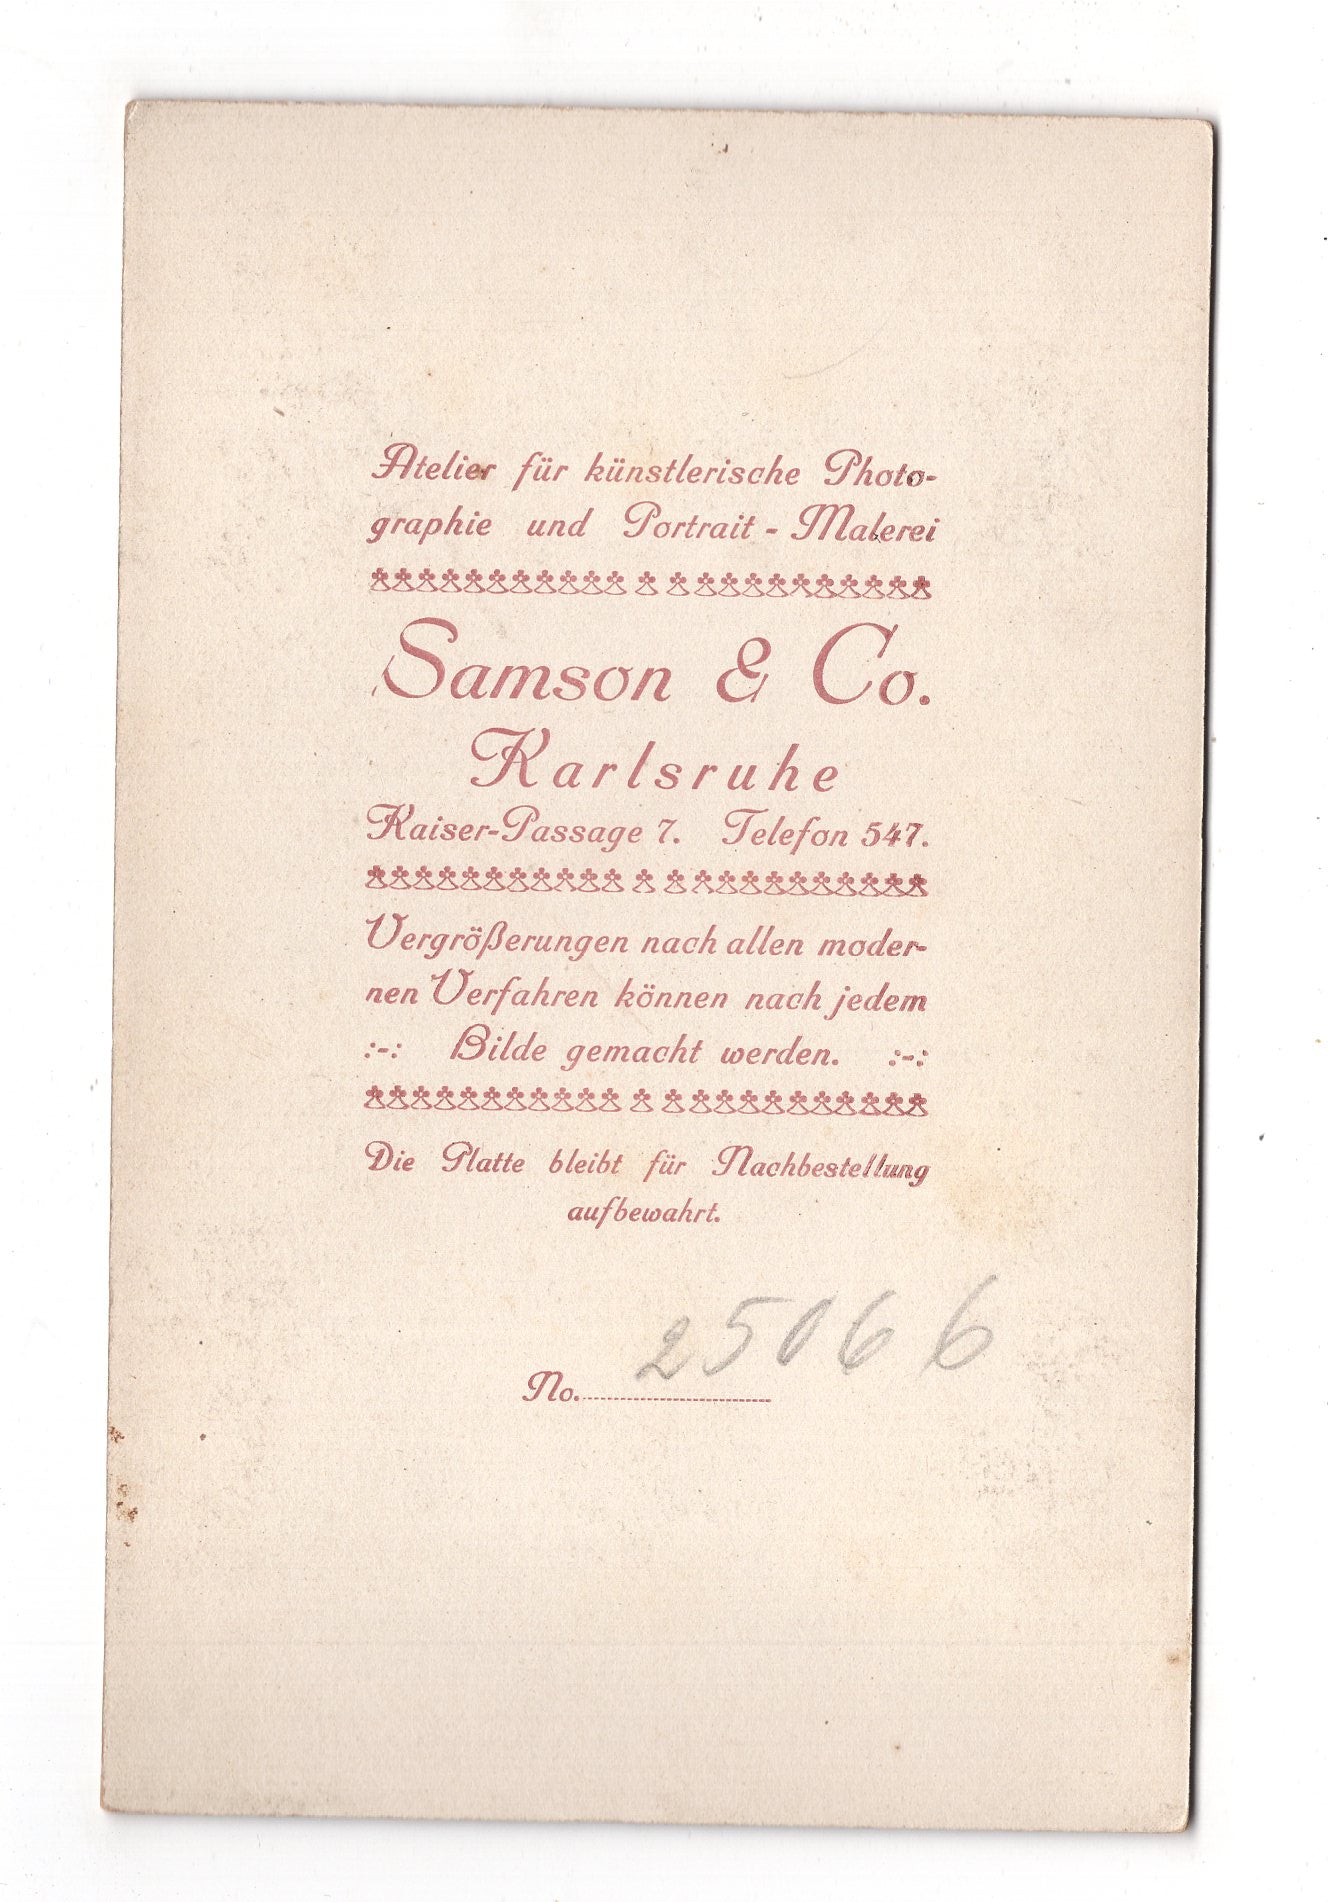 Atelier für künstlerische Photo-
graphie und Portrait-Malerei
Samson & Co.
Karlsruhe
Kaiser-Passage 7. Telefon 547.
Vergrößerungen nach allen moder-
nen Verfahren können nach jedem
:-: Bilde gemacht werden. :-:
Die Platte bleibt für Nachbestellung
aufbewahrt.
25066
No.